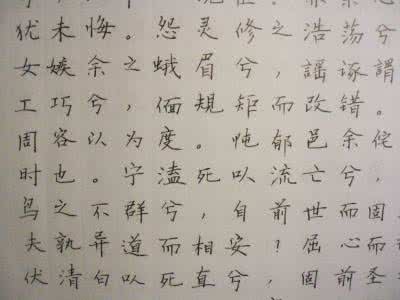 犹未悔。怨灵修之浩荡兮
女嫉余之蛾眉兮，謡诼謂
工巧兮，偭規矩而改错。
周容以为度。忳郁邑余侘
时也。宁溘死以流亡兮，
鸟之不群兮，自前世而固
夫孰异道而相安？屈心而
伏清白以死直兮，固前圣